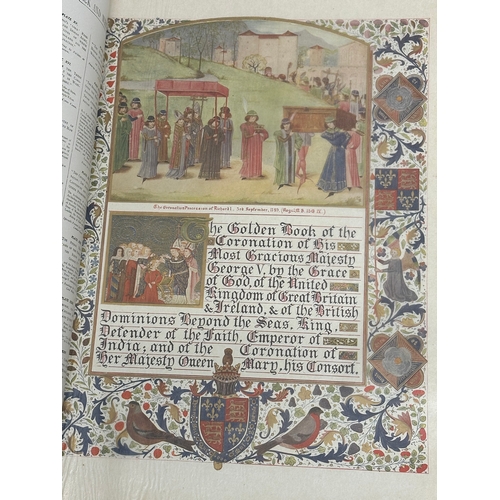 The Coronation Procession of Richard I. 3rd September, 1189.
The Golden Book of the
Coronation of His
Most Gracious Majesty
George V, by the Grace
of God, of the United
Kingdom of Great Britain
& Ireland, & of the British
Dominions Beyond the Seas, King,
Defender of the Faith, Emperor of
India; and of the Coronation of
Her Majesty Queen Mary, his Consort.